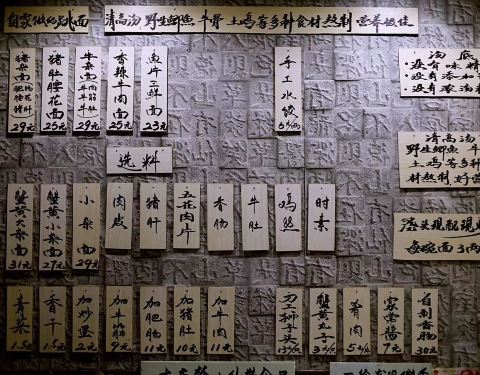 自家做的跳面
清高汤 野生鲫鱼 牛骨 土鸡等多种食材熬制 营养极佳
猪杂面 肥肠 猪肝 29元
猪肚腰花面 25元
牛杂面 牛肉 牛筋 牛肚 29元
香辣牛肉面 25元
鱼片三鲜面 23元
手工水饺
汤底
·没有味精
·没有添加
·没有浓汤
选料
清高汤
野生鲫鱼 牛
土鸡等多种
材熬制 好营
蟹黄大杂面 31元
蟹黄小杂面 27元
小杂面 24元
肉皮
猪肝
五花肉片
香肠
牛肚
鸡丝
时素
浇头现靓现
每碗面3两
青菜 1.5元
香干 1.5元
加炒蛋 2元
加牛筋 9元
加肥肠 11元
加猪肚 10元
加牛肉 11元
刀工狮子头
蟹黄丸子
肴肉
家常酱 7元
自制香肠 30元